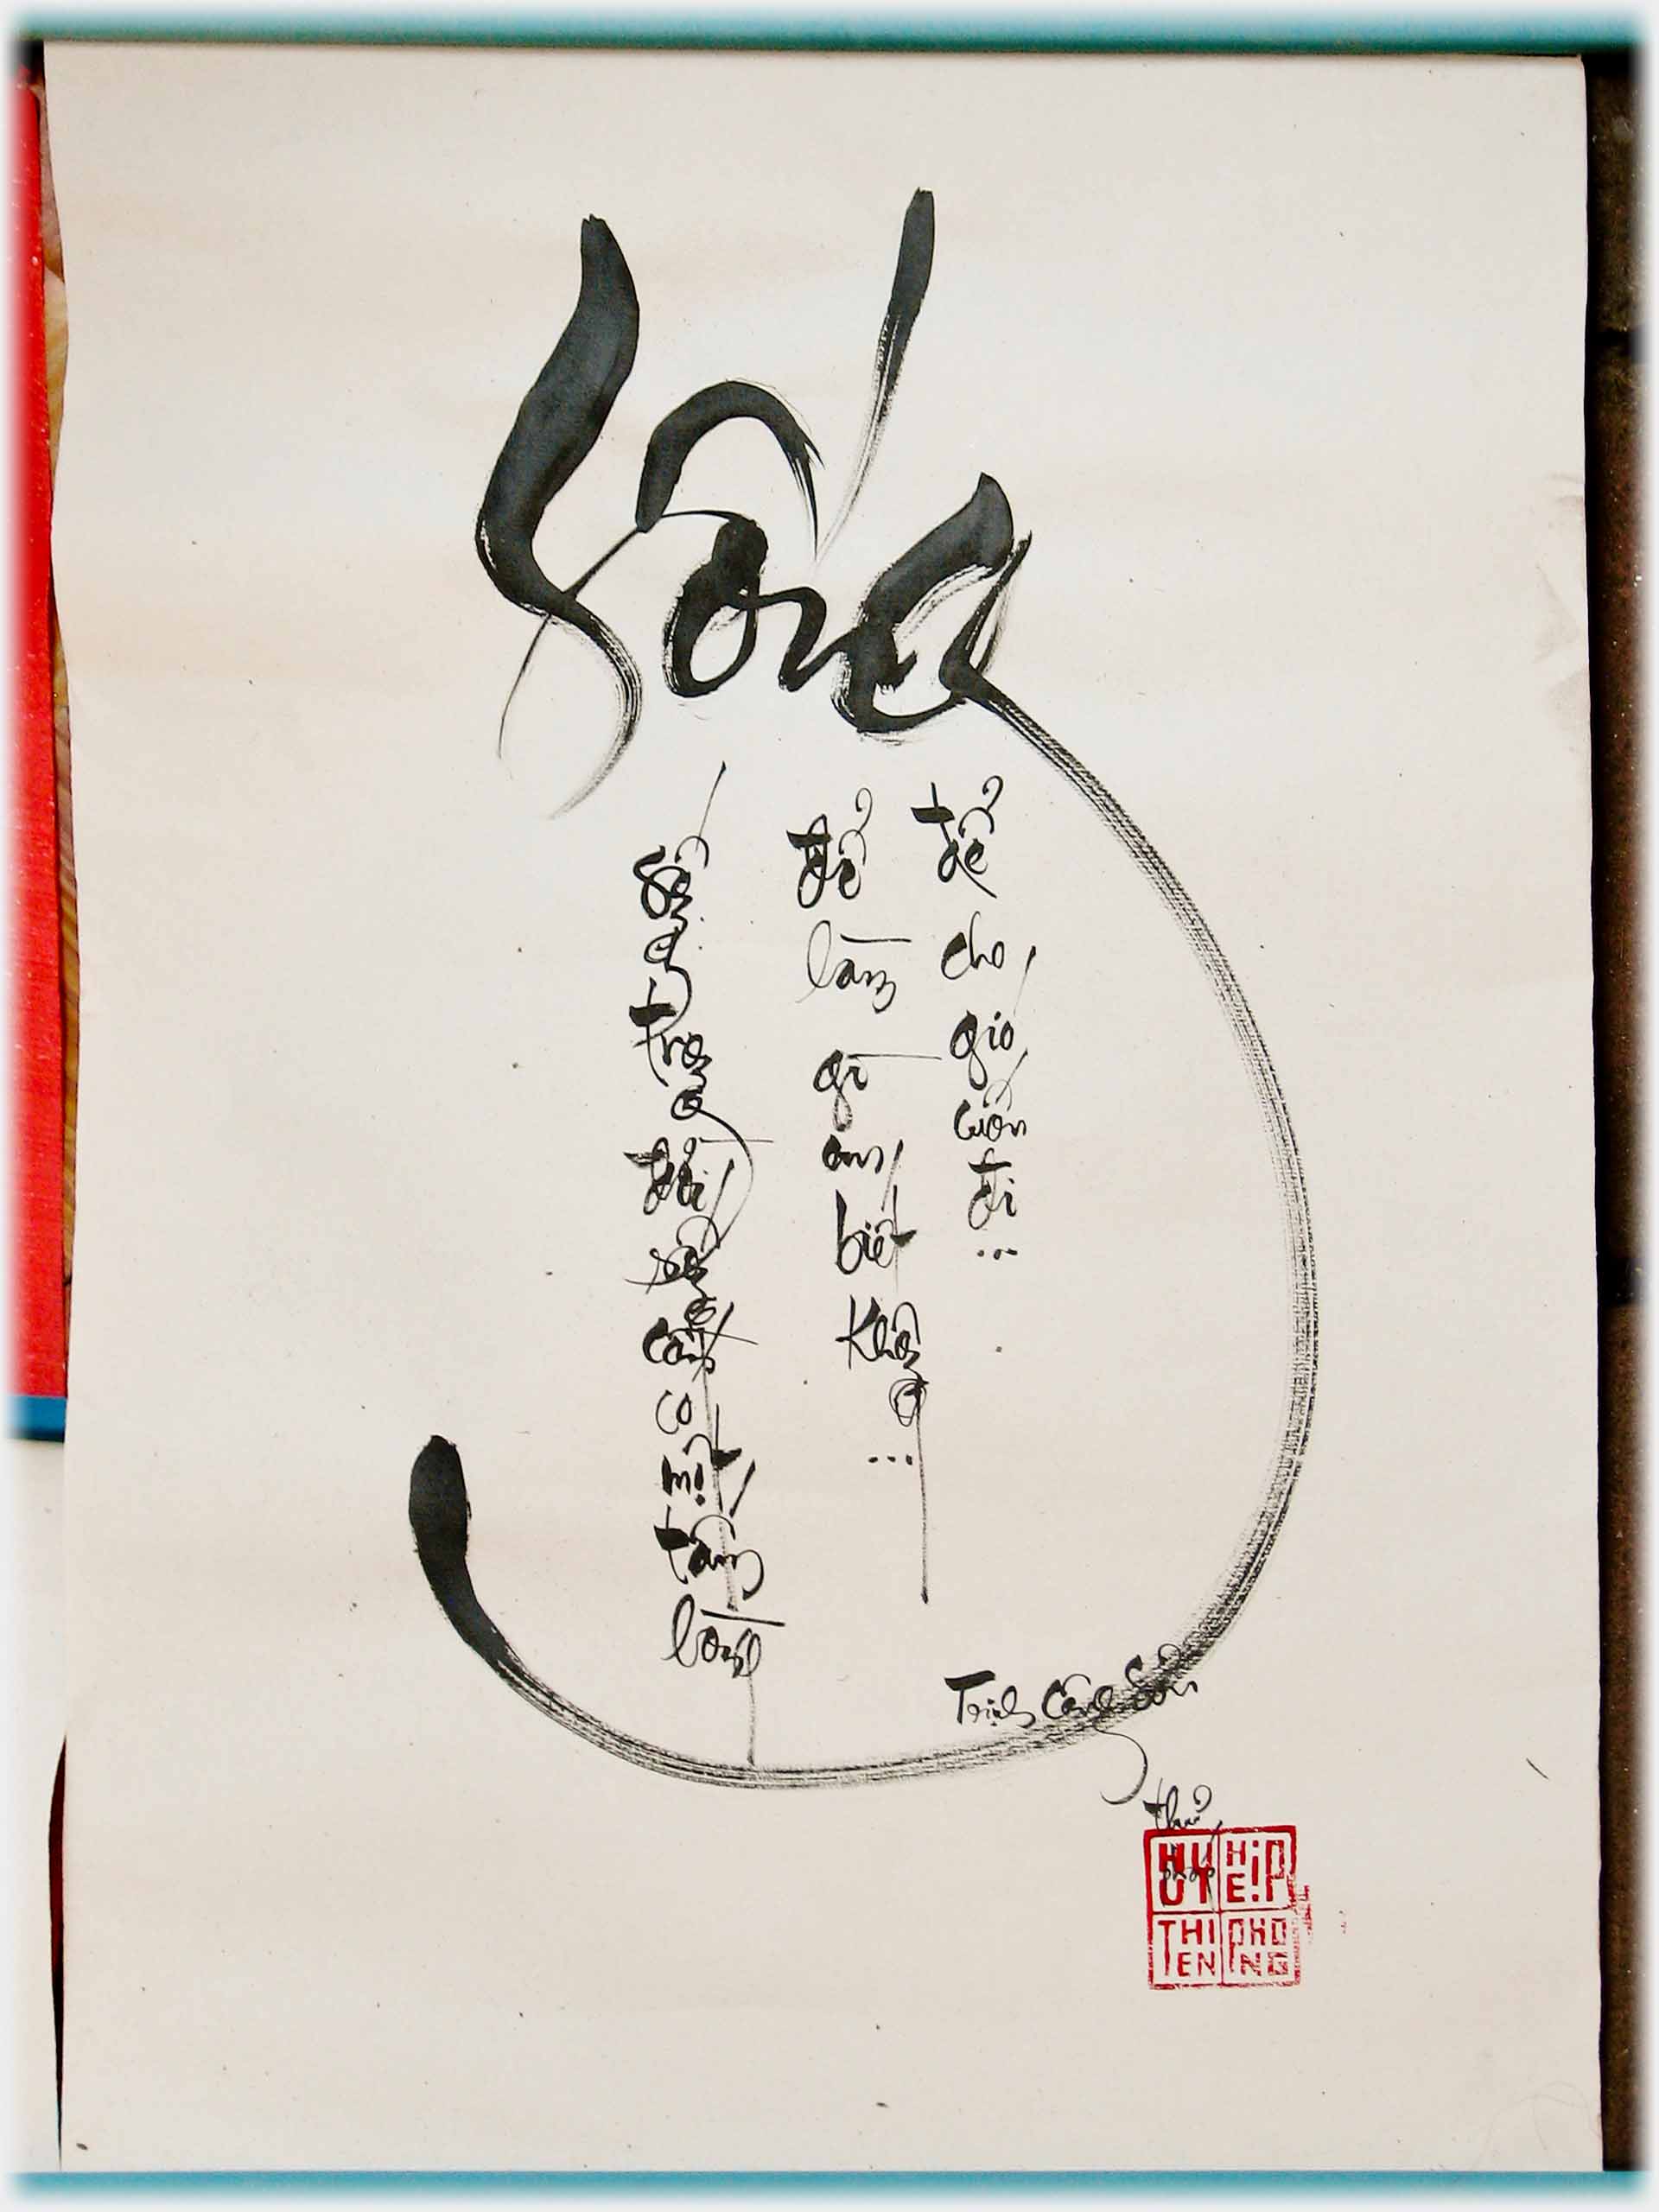 Sống
Sống trong đời sống cần có một tấm lòng
Để làm gì em biết không ...
Để cho gió cuốn đi ...
Trịnh Công Sơn
thư pháp
HUY HIỆP
THIEN PHONG